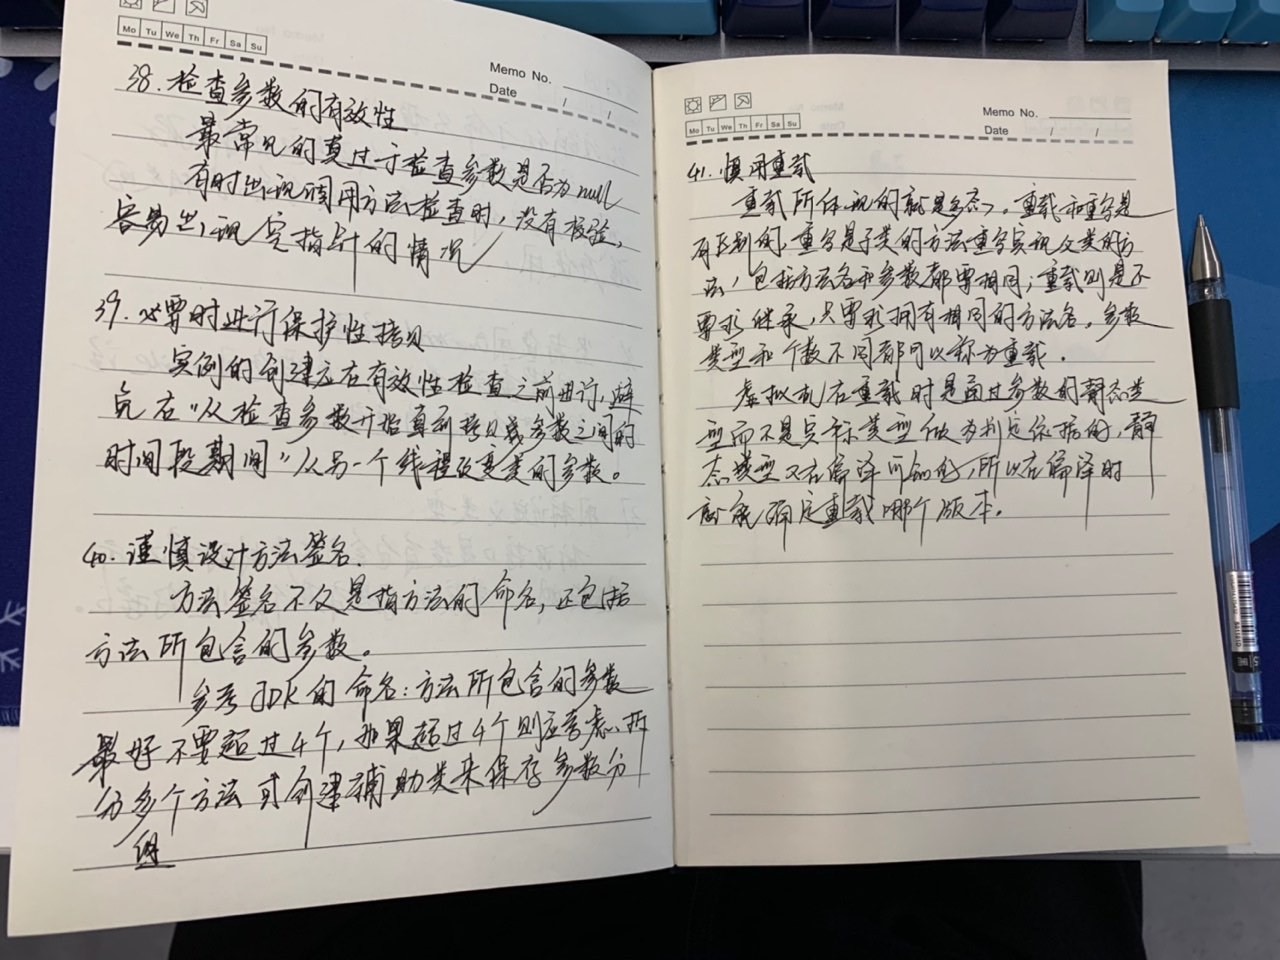 Mo Tu We Th Fr Sa Su
Memo No.
Date / /
38. 检查参数的有效性
最常见的莫过于检查参数是否为null
有时出现调用方法检查时，没有校验，
容易出现空指针的情况
39. 必要时进行保护性拷贝
实例的创建应在有效性检查之前进行，避
免在“从检查参数开始直到拷贝参数之间的
时间段期间”从另一个线程改变类的参数。
40. 谨慎设计方法签名.
方法签名不仅是指方法的命名，还包括
方法所包含的参数。
参考JDK的命名：方法所包含的参数
最好不要超过4个，如果超过4个则应考虑拆
分多个方法或创建辅助类来保存参数分
组
Mo Tu We Th Fr Sa Su
Memo No.
Date / /
41. 慎用重载
重载所体现的就是多态。重载和重写是
有区别的，重写是子类的方法重写实现父类的方
法，包括方法名和参数都要相同；重载则是不
要求继承，只要求拥有相同的方法名，参数
类型和个数不同都可以称为重载.
虚拟机在重载时是通过参数的静态类
型而不是实际类型做为判定依据的，静
态类型又在编译可知的，所以在编译时
就能确定重载哪个版本。